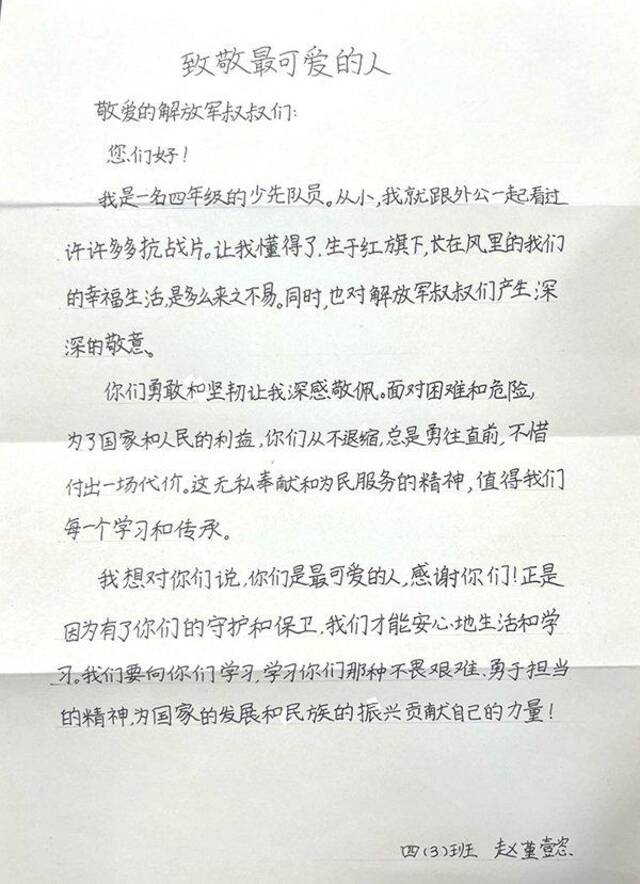 致敬最可爱的人
敬爱的解放军叔叔们:
您们好!
我是一名四年级的少先队员。从小,我就跟外公一起看过
许许多多抗战片。让我懂得了,生于红旗下,长在风里的我们
的幸福生活,是多么来之不易。同时,也对解放军叔叔们产生深
深的敬意。
你们勇敢和坚韧让我深感敬佩。面对困难和危险,
为了国家和人民的利益,你们从不退缩,总是勇往直前,不惜
付出一场代价。这无私奉献和为民服务的精神,值得我们
每一个学习和传承。
我想对你们说,你们是最可爱的人,感谢你们!正是
因为有了你们的守护和保卫,我们才能安心地生活和学
习。我们要向你们学习,学习你们那种不畏艰难、勇于担当
的精神,为国家的发展和民族的振兴贡献自己的力量!
四(3)班 赵堇壹恣